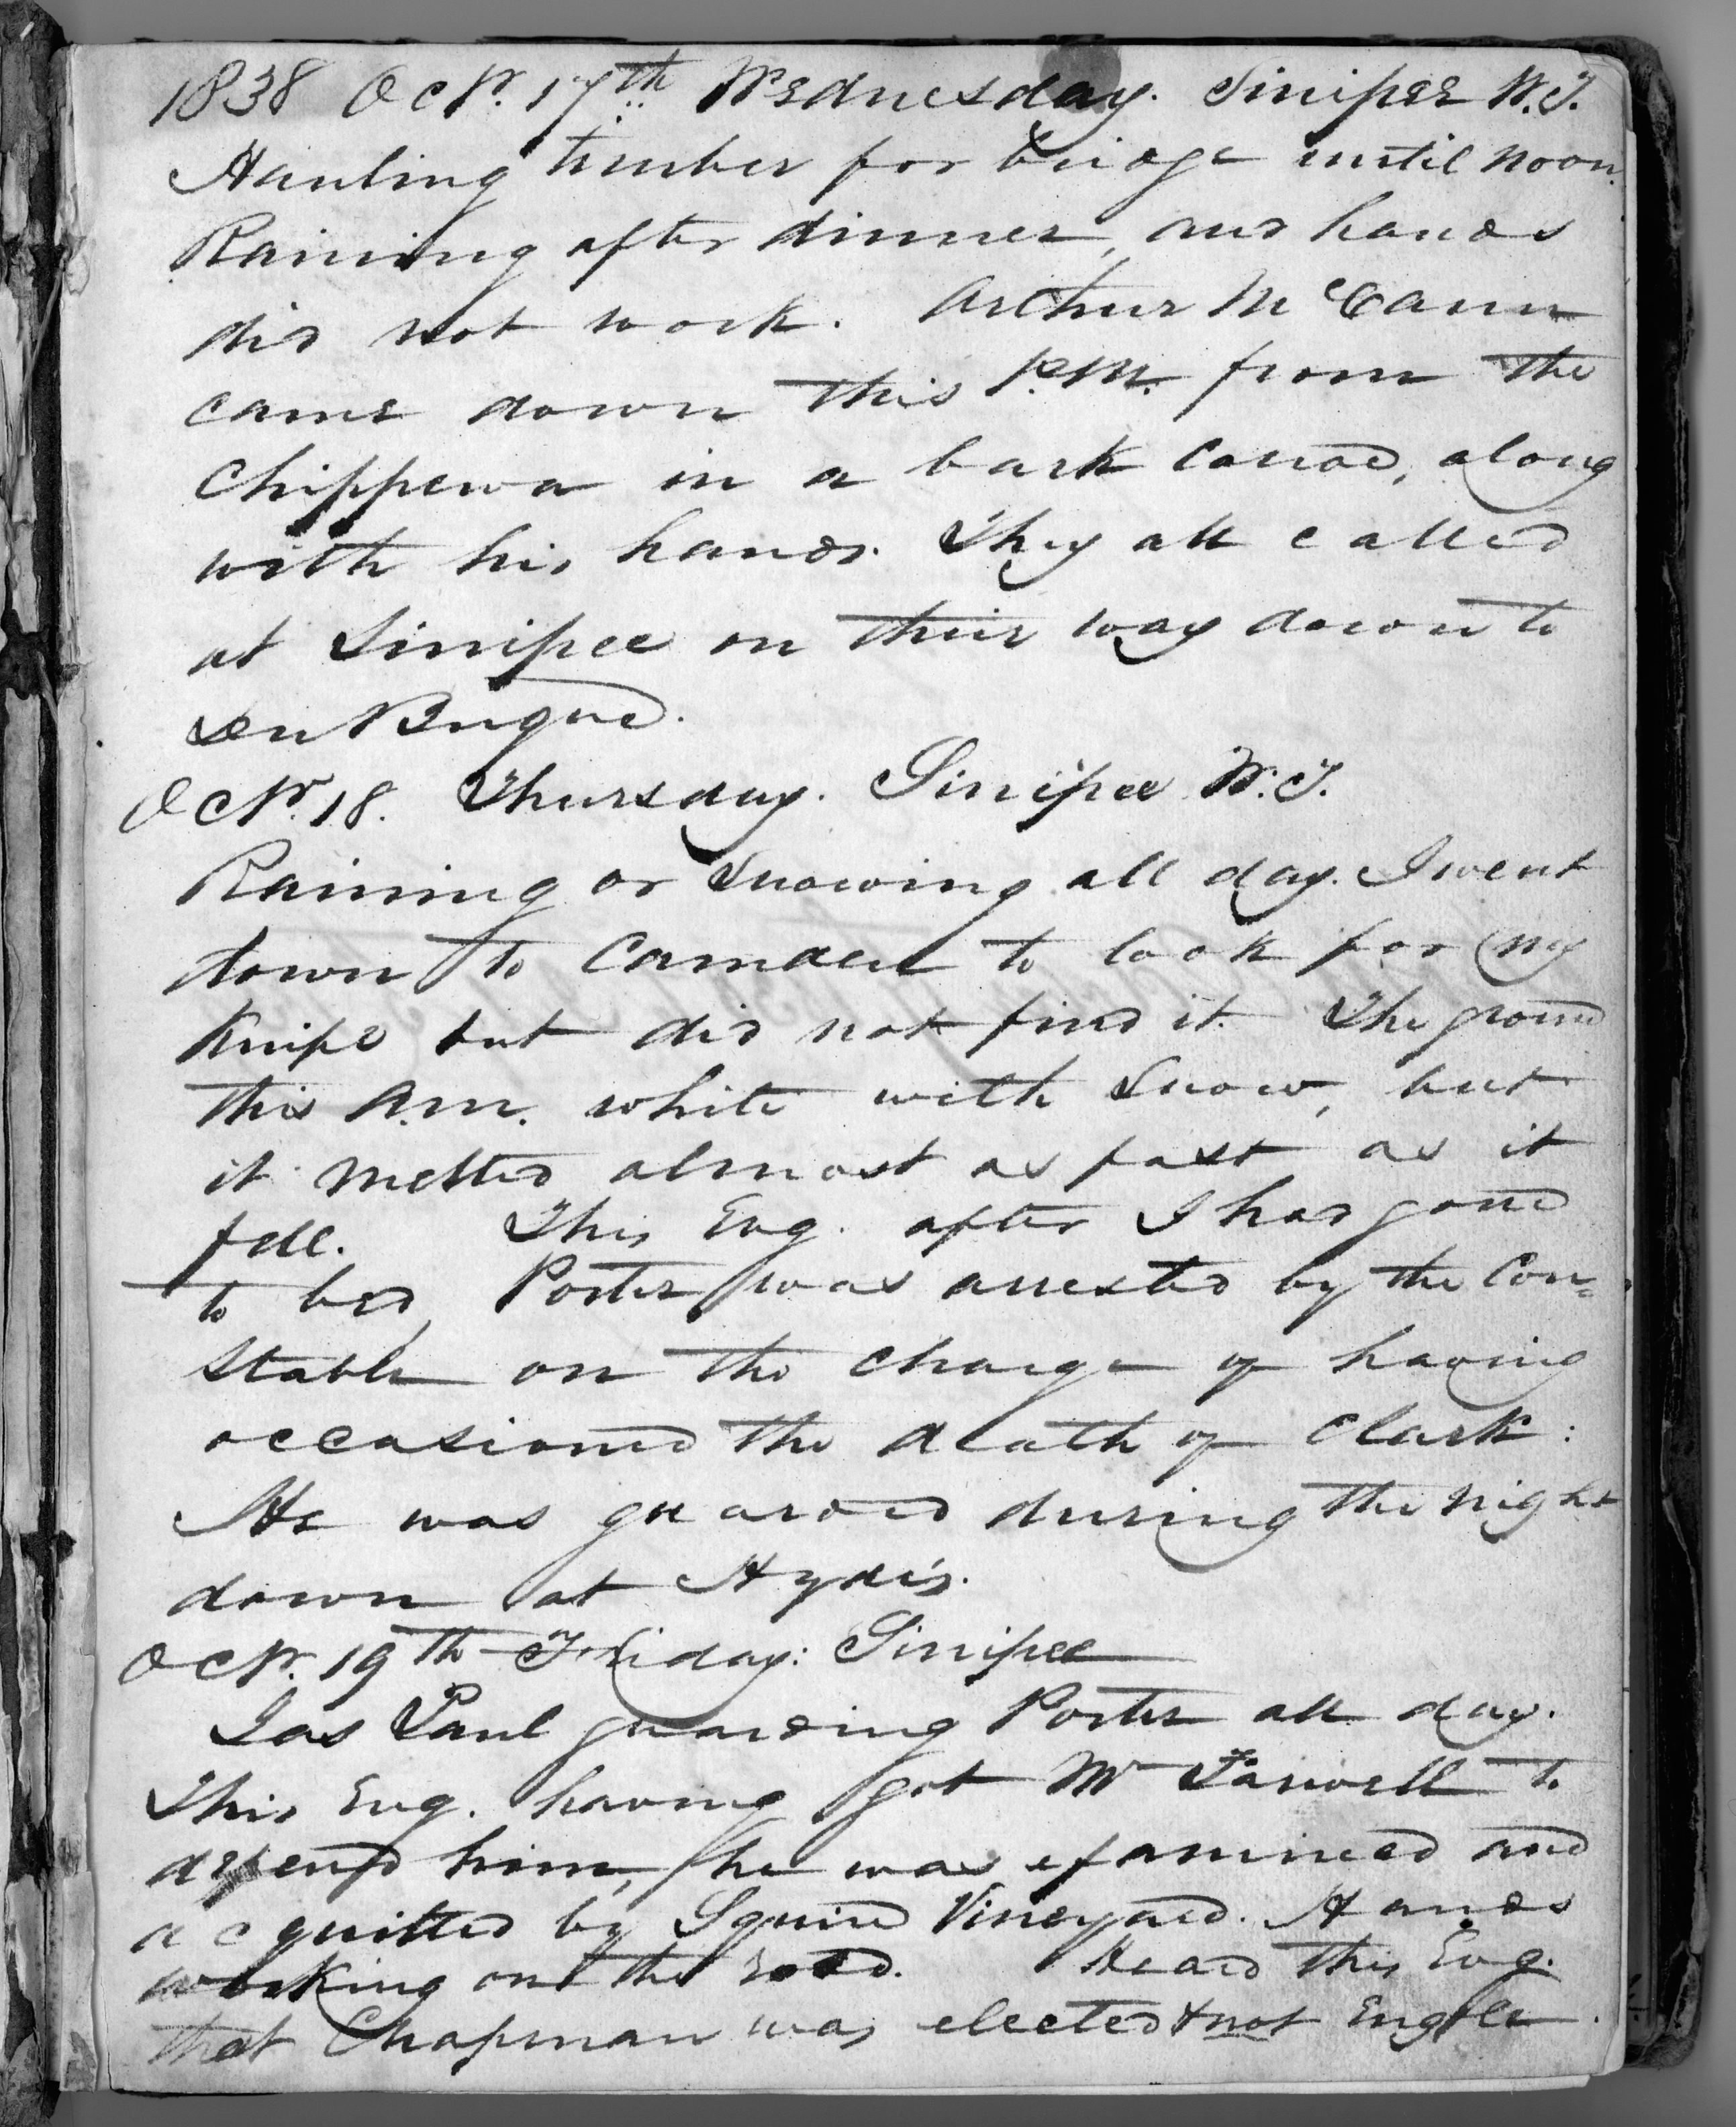 1838 Octr. 17th Wednesday. Sinipee W.T.
Hauling timber for bridge until noon.
Raining after dinner, and hands
did not work. Arthur McCann
came down this P.M. from the
Chippewa in a bark canoe, along
with his hands. They all called
at Sinipee on their way down to
Du Buque.
Octr. 18. Thursday. Sinipee W.T.
Raining or Snowing all day. I went
down to Camden to look for my
Knife but did not find it. The ground
this A.M. white with Snow, but
it melted almost as fast as it
fell. This Evg. after I had gone
to bed, Porter was arrested by the Con=
stable on the charge of having
occasioned the death of Clark:
He was guarded during the night
down at Hyde's.
Octr. 19th Friday: Sinipee
Jas Paul guarding Porter all day.
This Evg. having got Mr Farwell to
defend him, he was examined and
acquitted by Squire Vineyard. Hands
working on the road. Heard this Evg.
that Chapman was elected & not Engle.